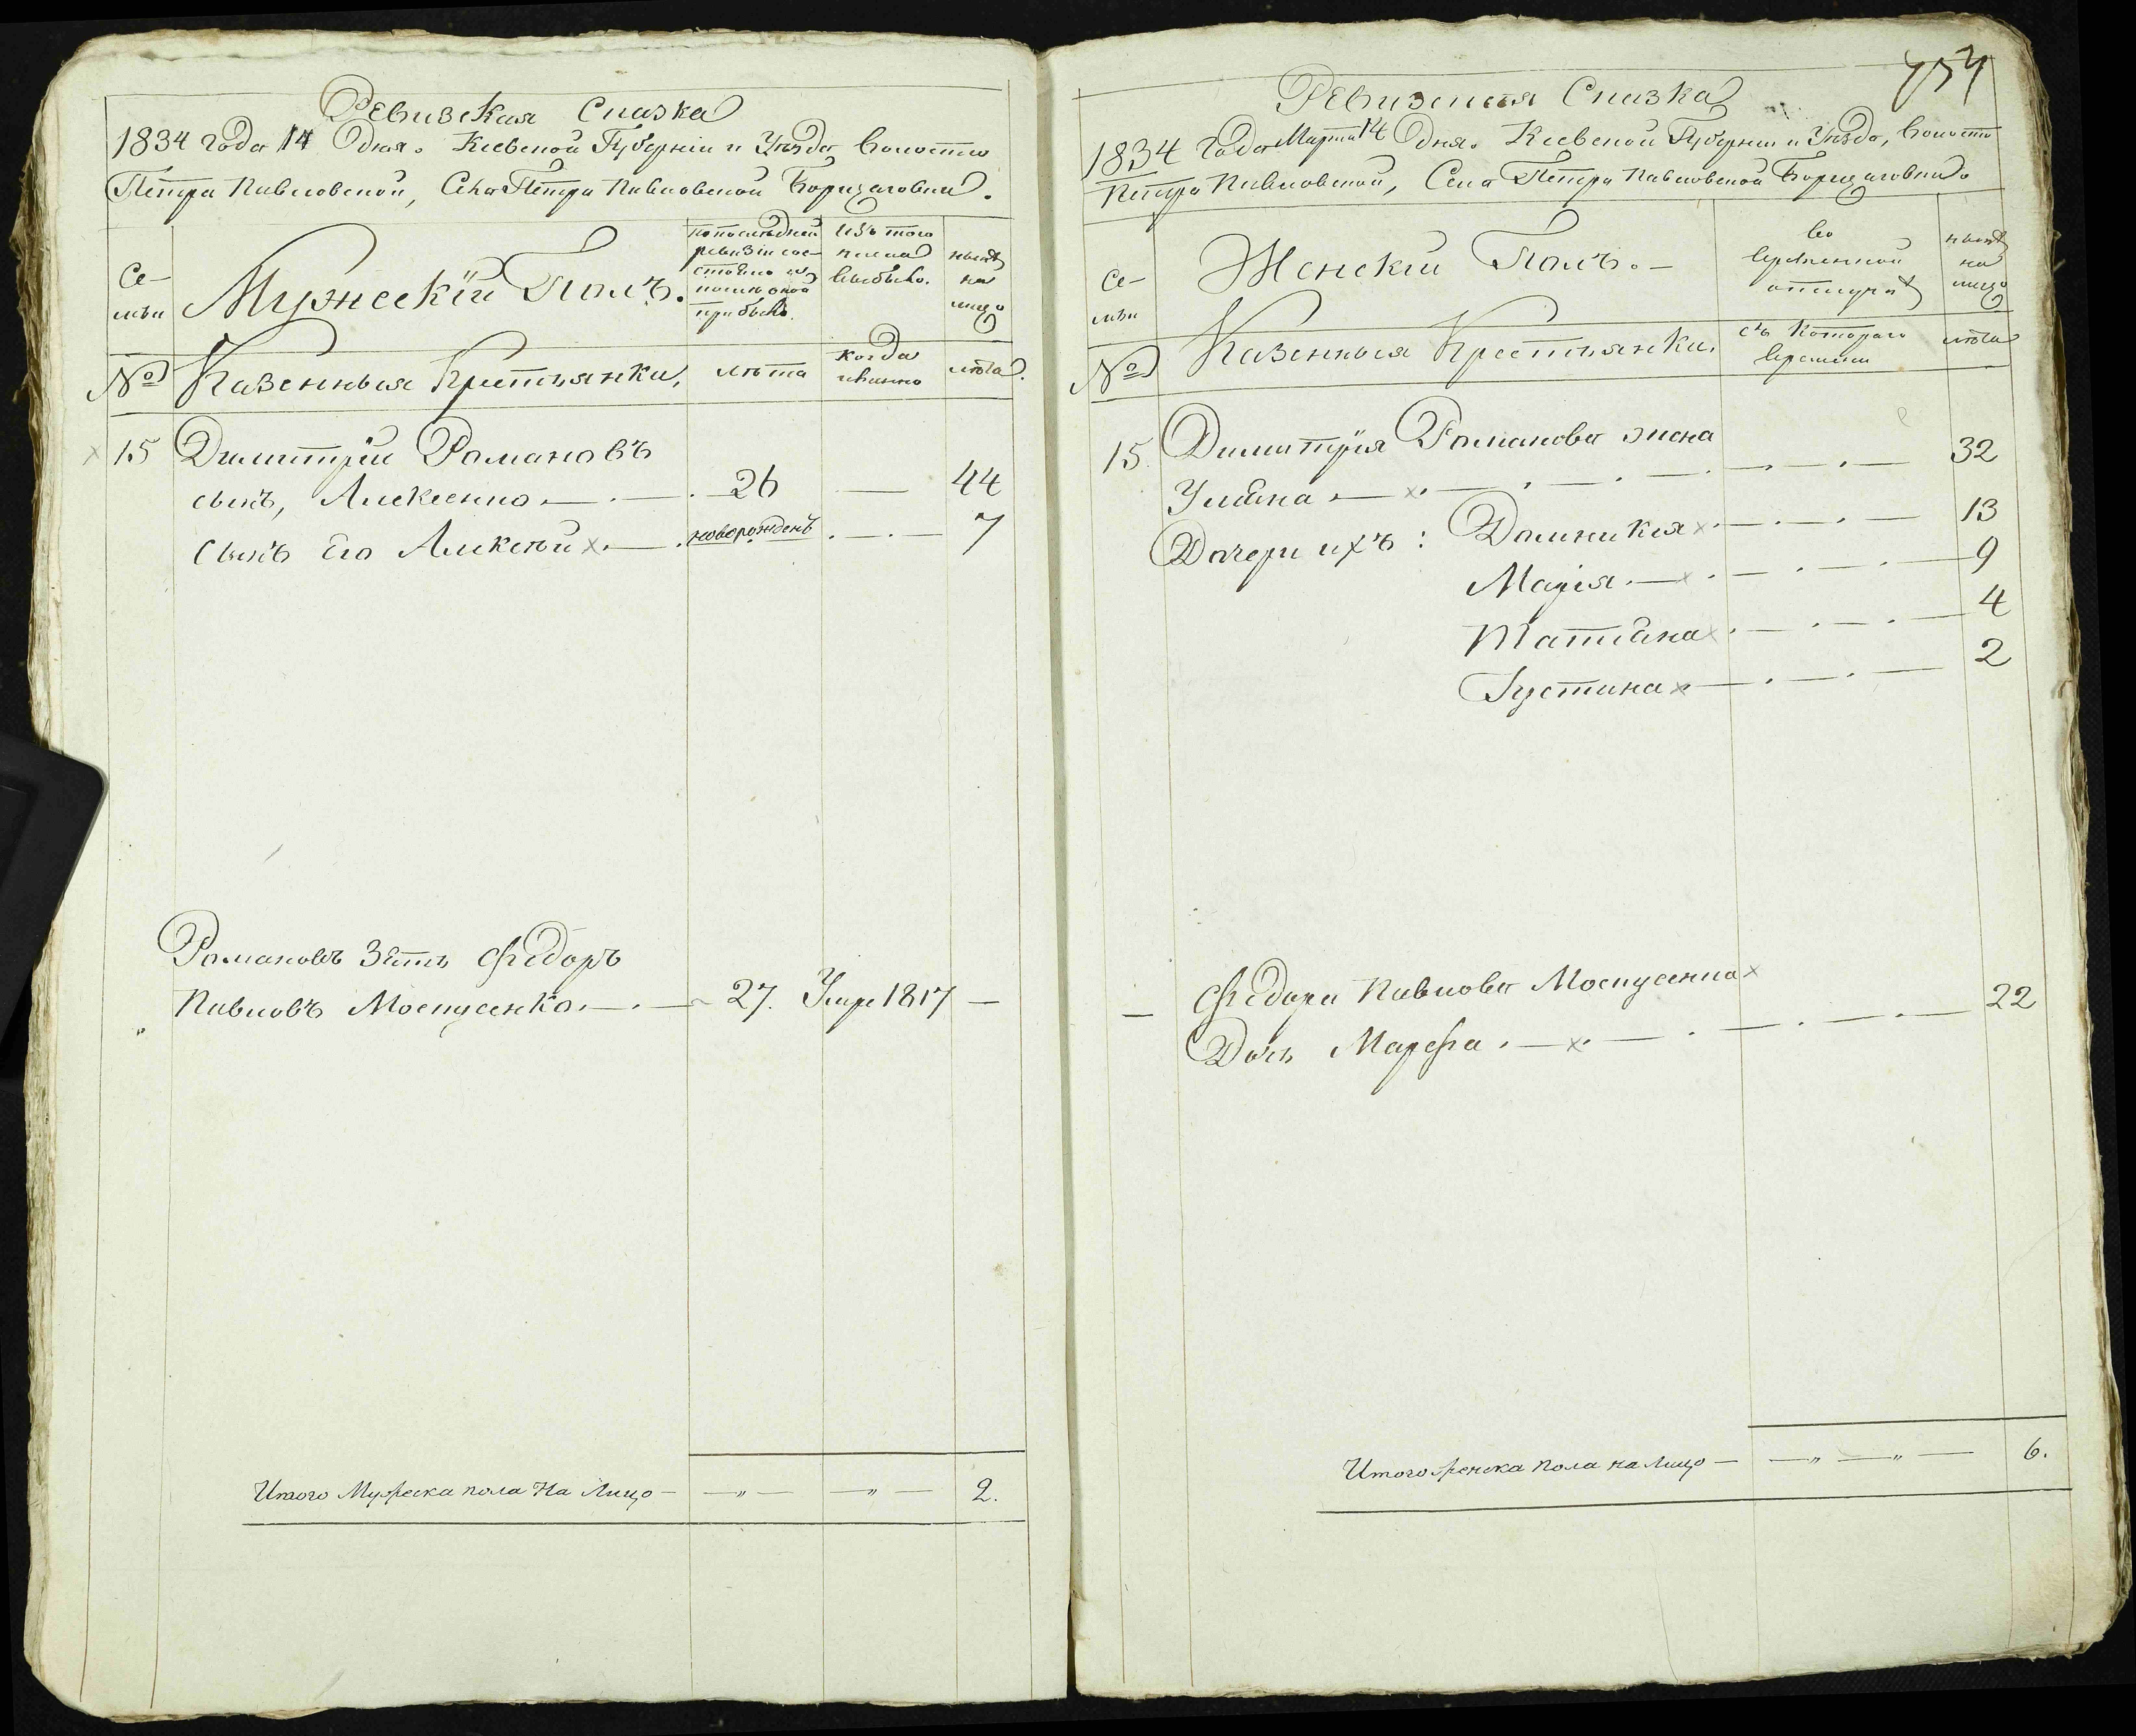 Ревизская Сказка
1834 года 14 Дня. Киевской Губернiи и Уѣзда Волости
Петро Павловской, Села Петро Павловской Борщаговки.
Се-
мьи
Мужескiй Полъ.
по последней
ревизiи сос-
стояло и
после оной
прибыло.
Изъ того
числа
выбыло.
нынѣ
на
лицо
№
Казенныя Крестьянки,
лѣта
когда
именно
лѣта.
15 Димитрiй Романовъ
сынъ, Алексенко 26 44
сынъ Его Алексѣй новорожденъ 7
Романовъ Зять Федоръ
Павловъ Моспусенко 27. Умре 1817
Итого Мужеска пола На Лицо 2.
757
Ревизская Сказка
1834 Года Марта 14 Дня. Киевской Губернiи и Уѣзда, Волости
Петро Павловской, Села Петро Павловской Борщаговки.
Се-
мьи
Женскiй Полъ.
Во
временной
отлучкѣ
нынѣ
на
лицо
№
Казенныя Крестьянки,
съ Котораго
времени
лѣта
15. Димитрiя Романова жена
Улiяна 32
Дочери ихъ: Домникiя 13
Марiя 9
Татiяна 4
Iустина 2
Федора Павлова Моспусенка
Дочь Марфа 22
Итого женска пола на лицо 6.